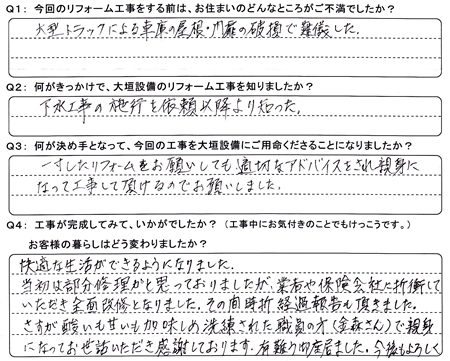 Q1: 今回のリフォーム工事をする前は、お住まいのどんなところがご不満でしたか?
大型トラックによる車庫の屋根・門扉の破損で難儀した。
Q2: 何がきっかけで、大垣設備のリフォーム工事を知りましたか?
下水工事の施行を依頼以降より知った。
Q3: 何が決め手となって、今回の工事を大垣設備にご用命くださることになりましたか?
一寸したリフォームをお願いしても適切なアドバイスをされ親身に
なって工事して頂けるのでお願いしました。
Q4: 工事が完成してみて、いかがでしたか? (工事中にお気付きのことでもけっこうです。)
お客様の暮らしはどう変わりましたか?
快適な生活ができるようになりました。
当初は部分修理かと思っておりましたが、業者や保険会社に折衝して
いただき全面改修となりました。その間時折経過報告も頂きました。
さすが酸いも甘いも加味しめ洗練された職員の方(金森さん)で親身
になってお世話いただき感謝しております。有難う御座居ました。今後もよろしく